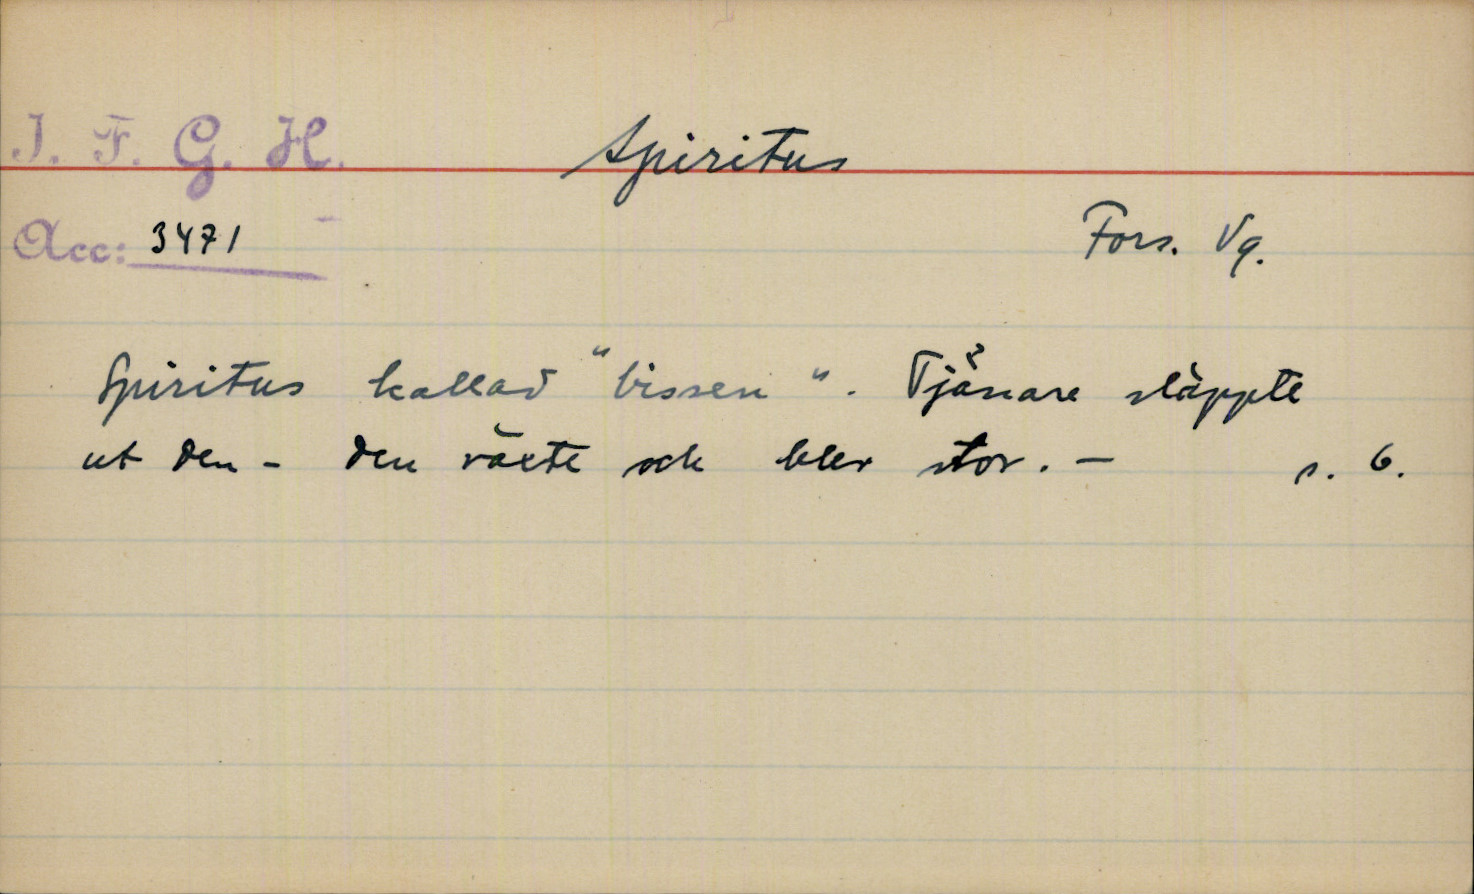 I. F. G. H.
Spiritus
Acc: 3471
Fors. Vg.
Spiritus kallad "bissen". Tjänare släppte
ut den - den växte och blev stor. - s. 6.